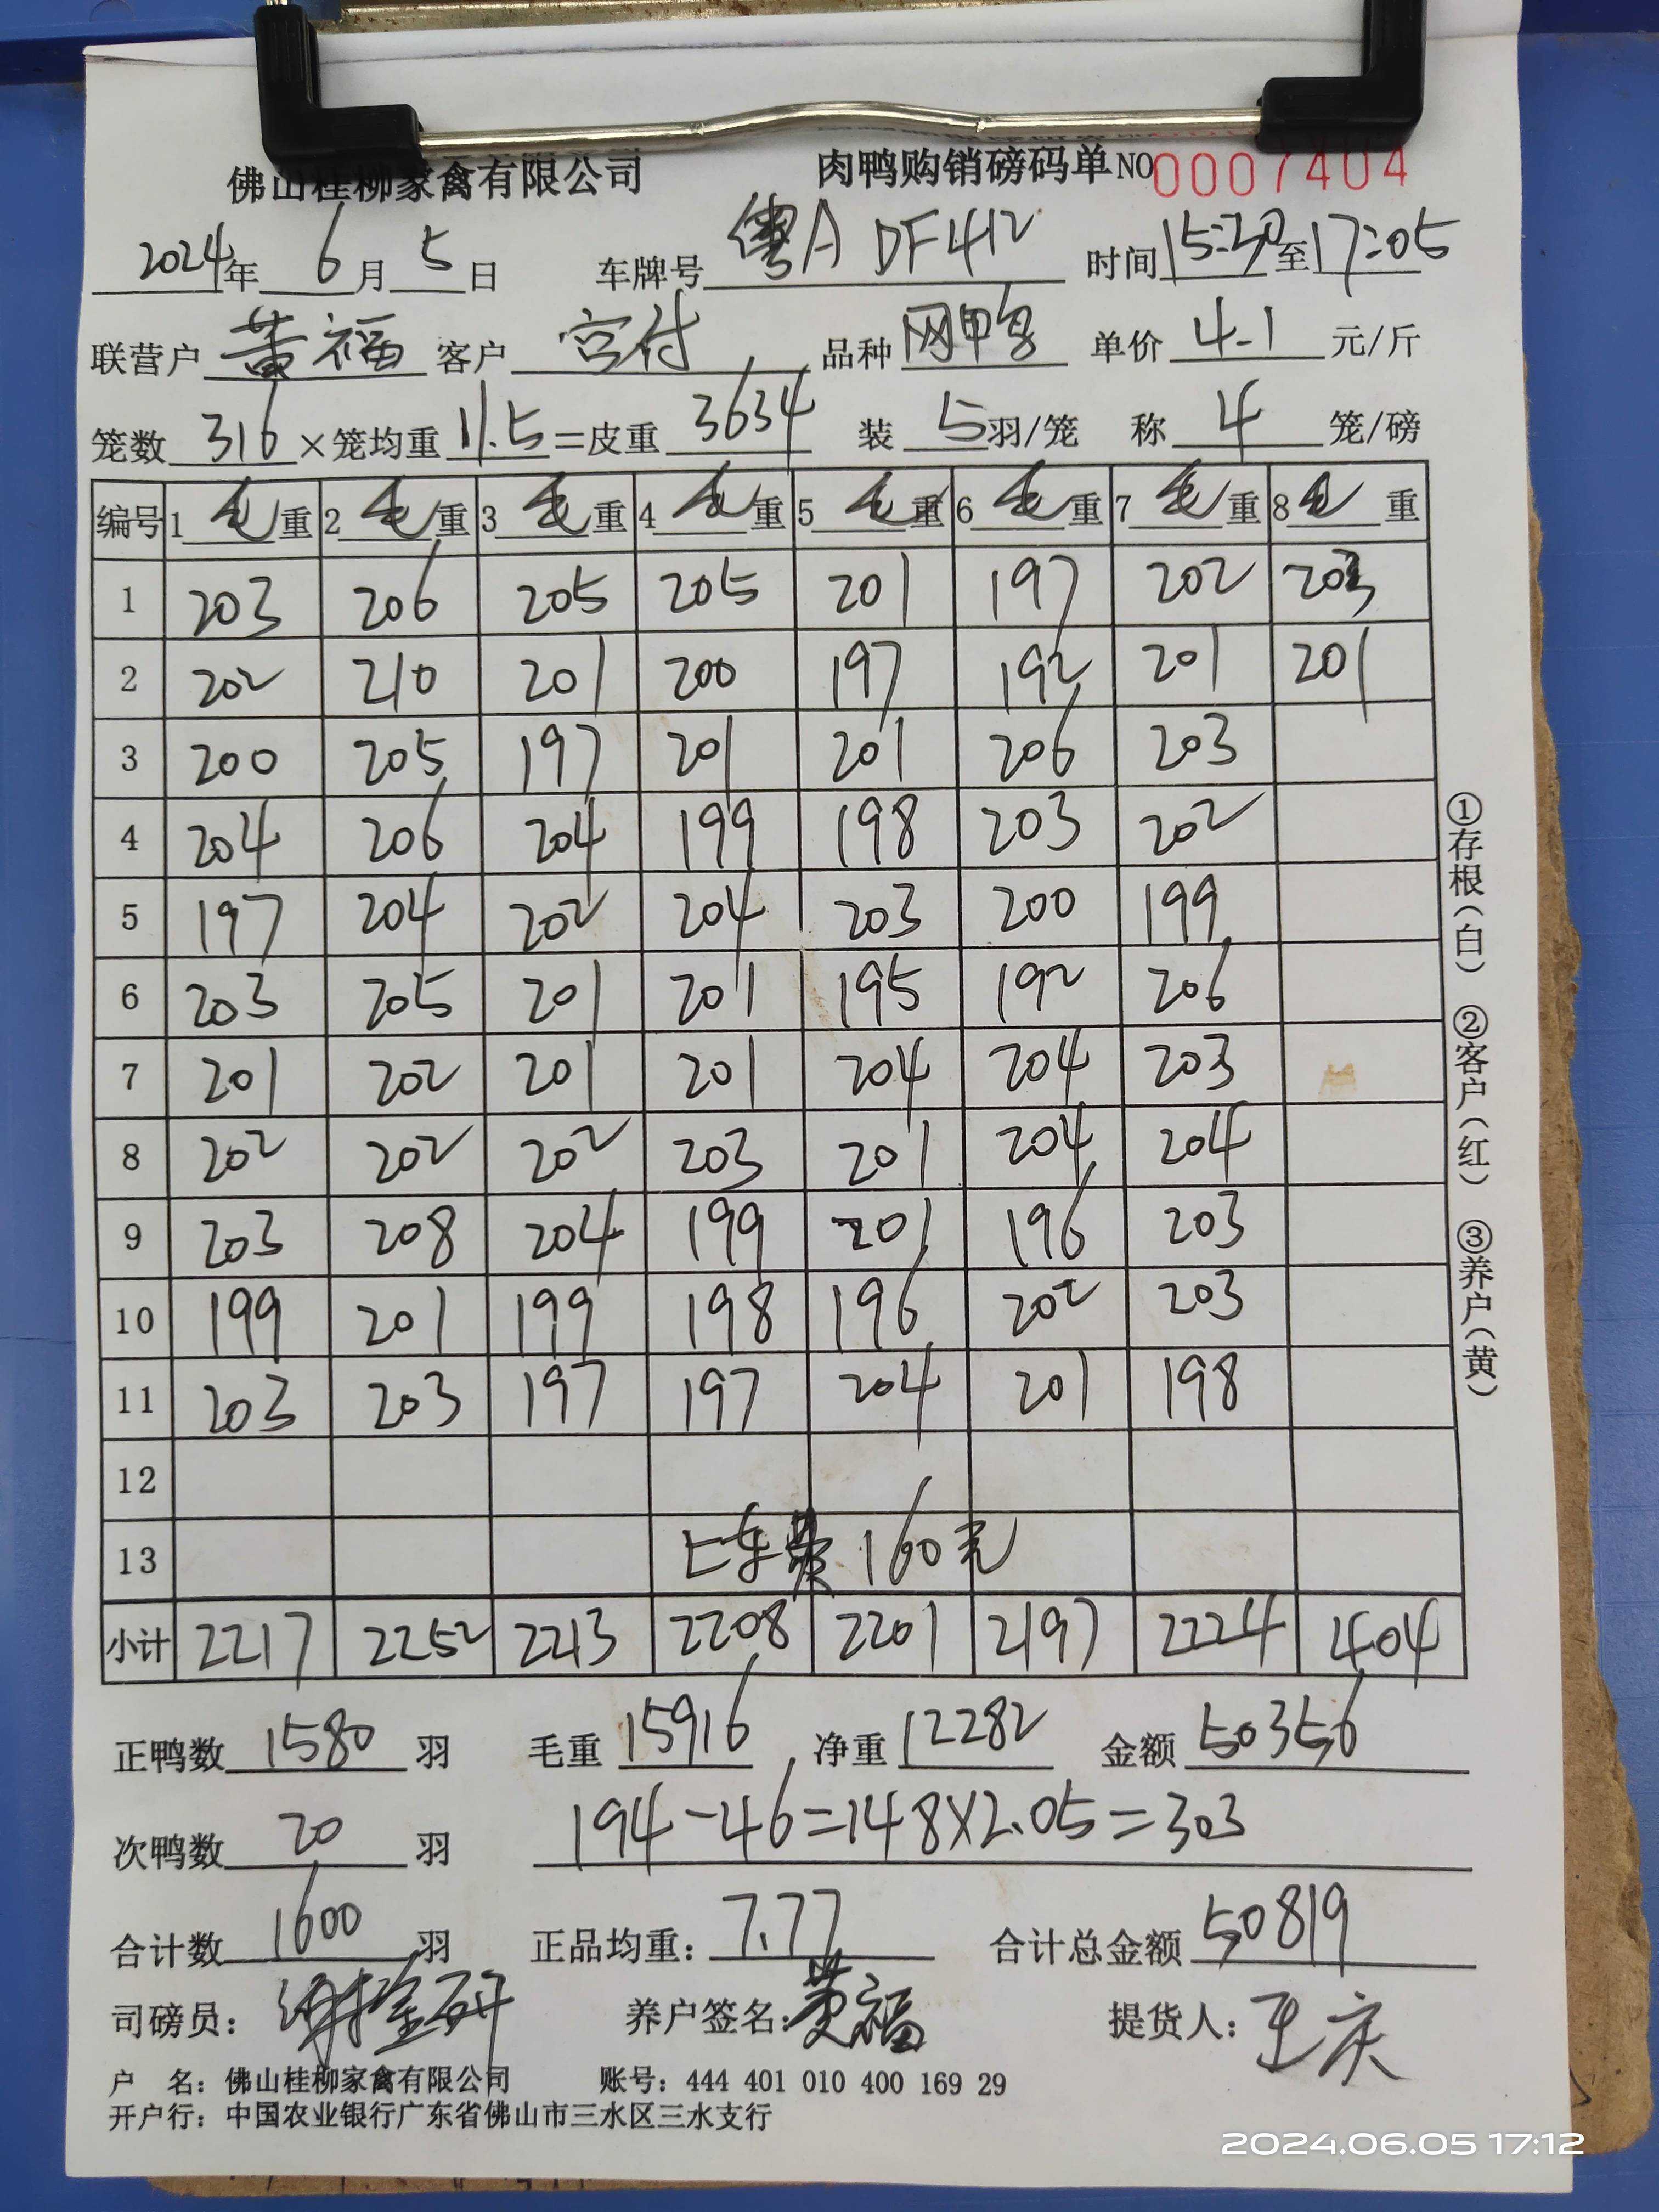 佛山桂柳家禽有限公司 肉鸭购销磅码单 NO 0007404
2024年 6月 5日 车牌号 粤A DF412 时间 15:30 至 17:05
联营户 黄福 客户 宫付 品种 网鸭 单价 4.1 元/斤
笼数 316 ×笼均重 11.5 =皮重 3634 装 5 羽/笼 称 4 笼/磅
编号 1 毛重 2 毛重 3 毛重 4 毛重 5 毛重 6 毛重 7 毛重 8 毛重
1 203 206 205 205 201 197 202 203
2 202 210 201 200 197 192 201 201
3 200 205 197 201 201 206 203
4 204 206 204 199 198 203 202
5 197 204 202 204 203 200 199
6 203 205 201 201 195 192 206
7 201 202 201 201 204 204 203
8 202 202 202 203 201 204 204
9 203 208 204 199 201 196 203
10 199 201 199 198 196 202 203
11 203 203 197 197 204 201 198
12
13 上车费 160元
小计 2217 2252 2213 2208 2201 2197 2224 404
正鸭数 1580 羽 毛重 15916 净重 12282 金额 50356
次鸭数 20 羽 194-46=148×2.05=303
合计数 1600 羽 正品均重: 7.77 合计总金额 50819
司磅员: 养户签名: 黄福 提货人: 王庆
户 名: 佛山桂柳家禽有限公司 账号: 444 401 010 400 169 29
开户行: 中国农业银行广东省佛山市三水区三水支行
①存根(白) ②客户(红) ③养户(黄)
2024.06.05 17:12